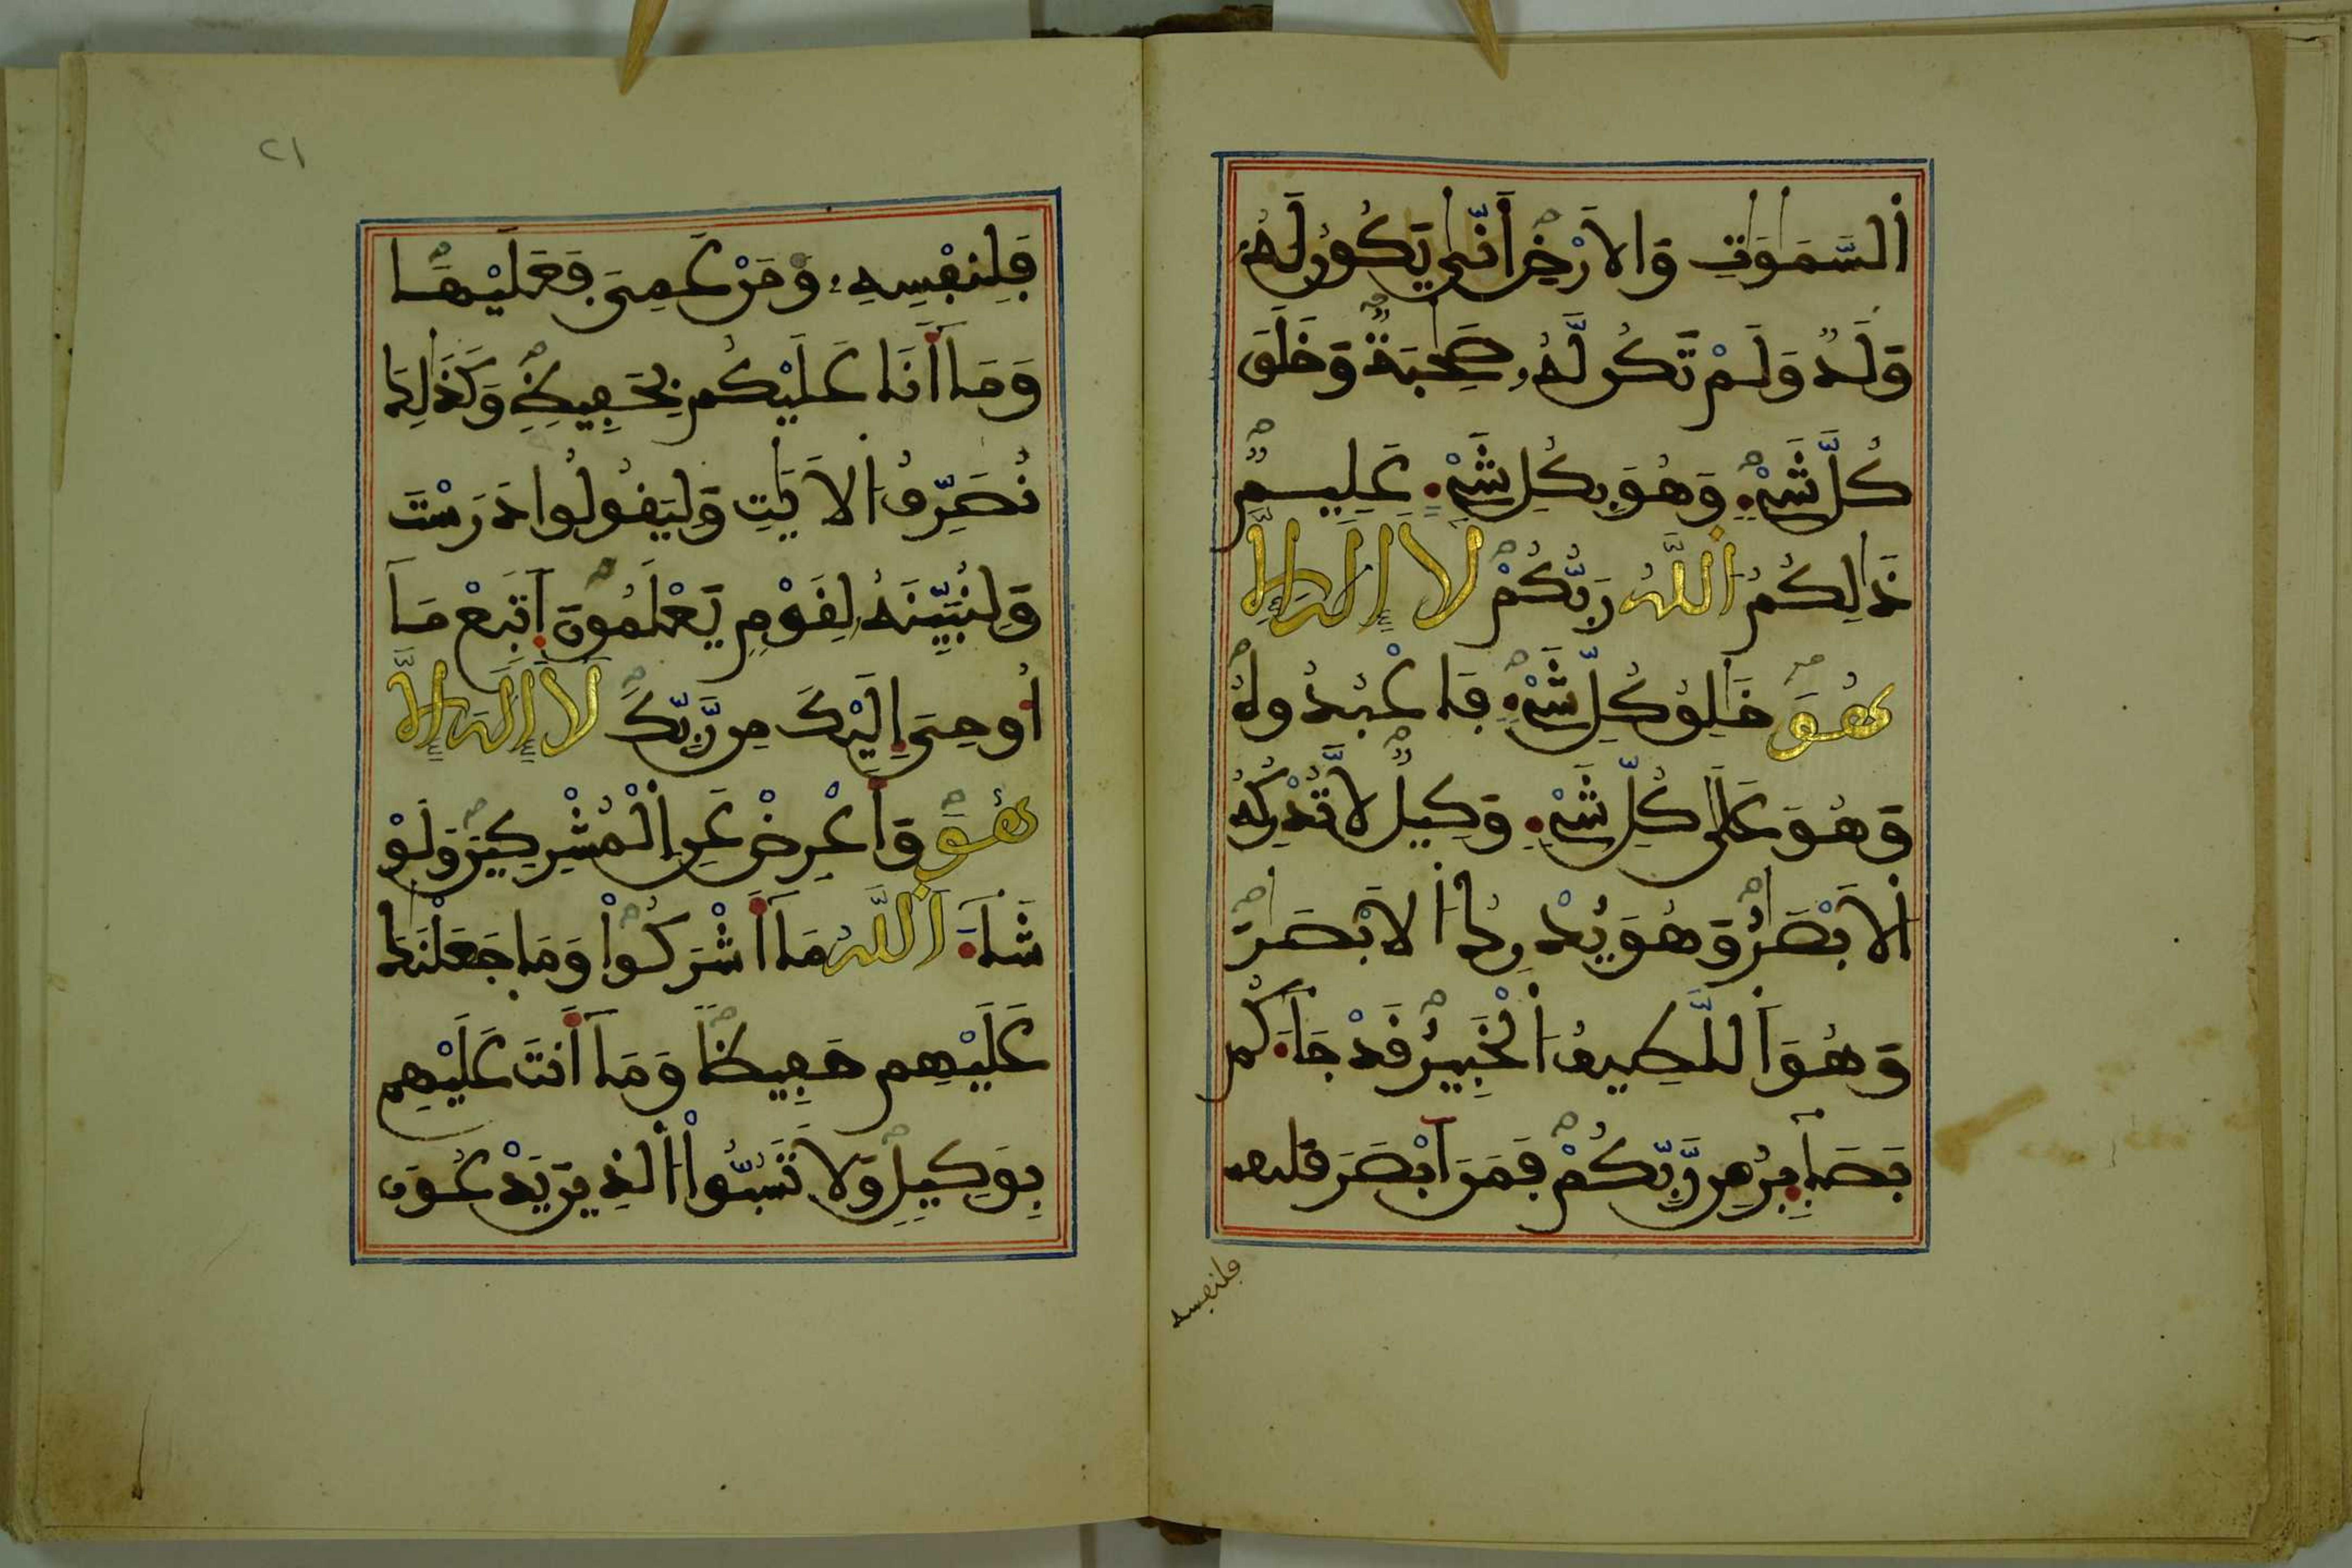 اَ۬لسَّمَٰوَٰتِ وَالَارْضِ أَنّ۪ىٰ يَكُونُ لَهُۥ
وَلَدٌ وَلَمْ تَكُن لَّهُۥ صَٰحِبَةٌ وَخَلَقَ
كُلَّ شَےْءٍ وَهُوَ بِكُلِّ شَےْءٍ عَلِيمٌ
ذَٰلِكُمُ اُ۬للَّهُ رَبُّكُمْ لَآ إِلَٰهَ إِلَّا
هُوَ خَٰلِقُ كُلِّ شَےْءٍ فَاعْبُدُوهُ
وَهُوَ عَلَىٰ كُلِّ شَےْءٍ وَكِيلٌ لَّا تُدْرِكُهُ
اُ۬لَابْصَٰرُ وَهُوَ يُدْرِكُ اُ۬لَابْصَٰرَ
وَهُوَ اَ۬للَّطِيفُ اُ۬لْخَبِيرُ قَدْ جَآءَكُم
بَصَآئِرُ مِن رَّبِّكُمْ فَمَنَ اَبْصَرَ
فلنفسه
٢١
فَلِنَفْسِهِۦ وَمَنْ عَمِىَ فَعَلَيْهَا
وَمَآ أَنَا عَلَيْكُم بِحَفِيظٍ وَكَذَٰلِكَ
نُصَرِّفُ اُ۬لَايَٰتِ وَلِيَقُولُوا دَرَسْتَ
وَلِنُبَيِّنَهُۥ لِقَوْمٍ يَعْلَمُونَ اَتَّبِعْ مَآ
أُوحِىَ إِلَيْكَ مِن رَّبِّكَ لَآ إِلَٰهَ إِلَّا
هُوَ وَأَعْرِضْ عَنِ اِ۬لْمُشْرِكِينَ وَلَوْ
شَآءَ اَ۬للَّهُ مَآ أَشْرَكُواْ وَمَا جَعَلْنَٰكَ
عَلَيْهِمْ حَفِيظًا وَمَآ أَنتَ عَلَيْهِم
بِوَكِيلٍ وَلَا تَسُبُّواْ اُ۬لذِينَ يَدْعُونَ